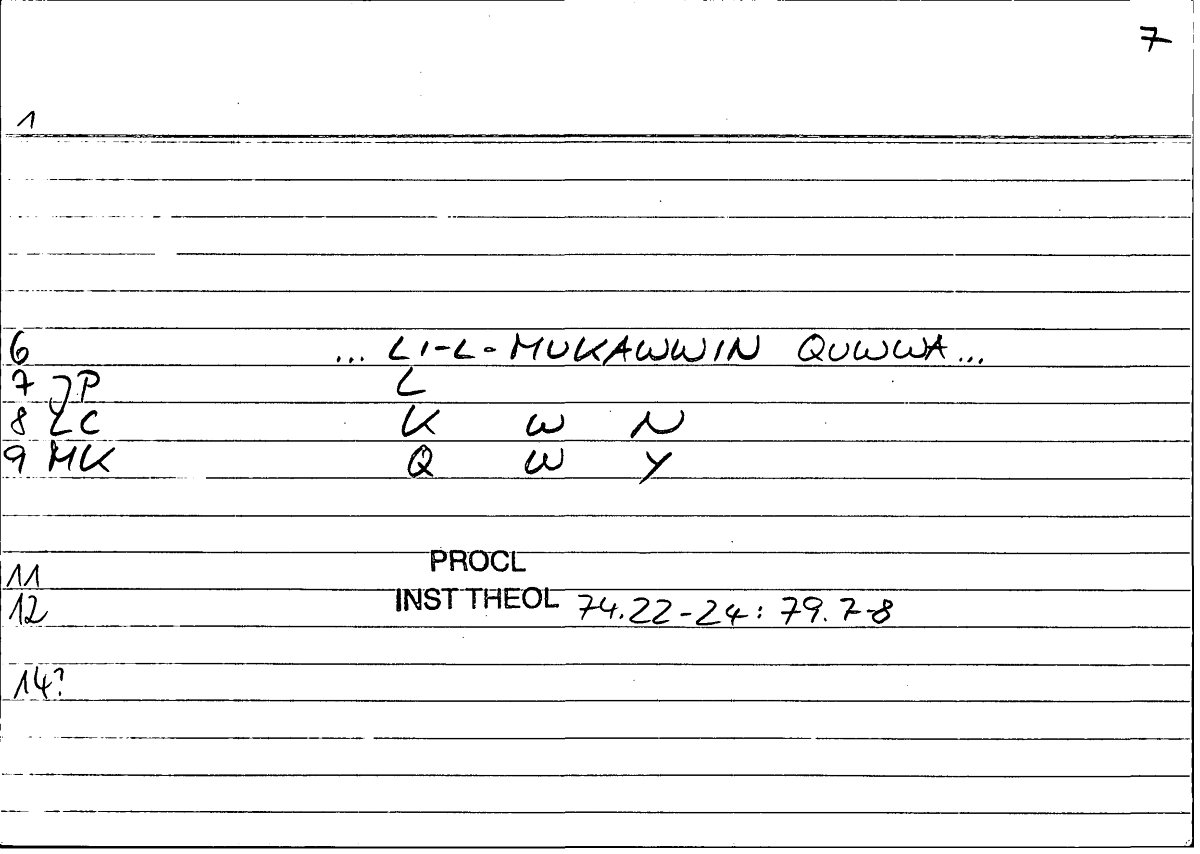 7
1
6 ... LI-L-MUKAWWIN QUWWA ...
7 JP L
8 LC K W N
9 MK Q W Y
11 PROCL
12 INST THEOL 74.22-24: 79.7-8
14?